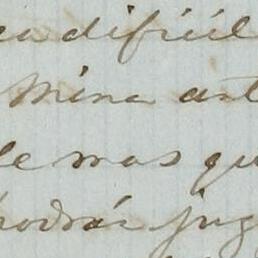 ea difícil
Mina ant
le mas qu
podrán jug